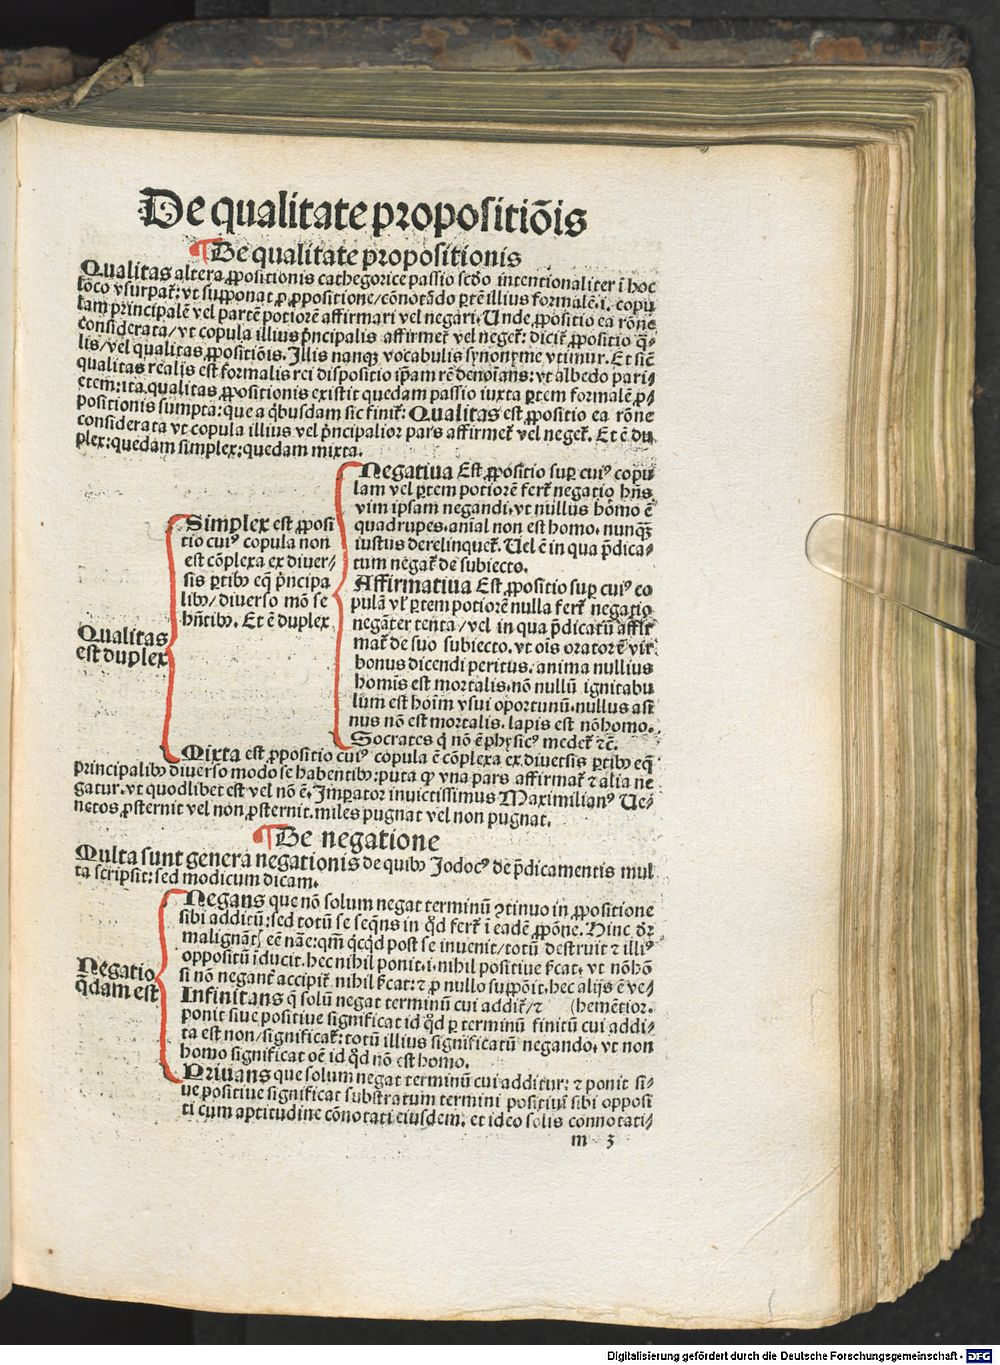 De qualitate propositiōis
¶ De qualitate propositionis
Qualitas altera ꝓpositionis cathegorice passio scďo intentionaliter ī hoc
loco vsurpat̄: vt supponat ꝓ ꝓpositione/cōnotādo ꝑtē illius formalē .i. copu
lam principalē vel partē potiorē affirmari vel negari. Unde ꝓpositio ea rōne
considerata/vt copula illius p̄ncipalis affirmet̄ vel neget̄: dicit̄ ꝓpositio q̄-
lis/vel qualitas ꝓpositiōis. Illis nanqꝫ vocabulis synonyme vtimur. Et sic̄
qualitas realis est formalis rei dispositio ip̄am rē denoīans: vt albedo pari/
etem: ita qualitas ꝓpositionis existit quedam passio iuxta ꝑtem formalē ꝓ-
positionis sumpta: que a q̇busdam sic finit̄: Qualitas est ꝓpositio ea rōne
considerata vt copula illius vel p̄ncipalior pars affirmet̄ vel neget̄. Et ē du
plex: quedam simplex: quedam mixta.
Negatiua Est ꝓpositio suꝑ cuiꝰ copu
lam vel ꝑtem potiorē fert̄ negatio hn̄s
vim ipsam negandi. vt nullus homo ē
quadrupes. anīal non est homo. nunqꝫ
iustus derelinquet̄. Uel ē in qua p̄dica-
tum negat̄ de subiecto.
Affirmatiua Est ꝓpositio suꝑ cuiꝰ co
pulā vl̄ ꝑtem potiorē nulla fert̄ negatio
negāter tenta/vel in qua p̄dicatū affir
mat̄ de suo subiecto. vt ois orator ē vir
bonus dicendi peritus. anima nullius
homīs est mortalis. nō nullū ignitabu
lum est hoīm vsui oportunū. nullus asi
nus nō est mortalis. lapis est nō homo.
Socrates q̇ nō ē physicꝰ medet̄ ⁊c̄.
Simplex est ꝓposi
tio cuiꝰ copula non
est cōplexa ex diuer/
sis ꝑtibꝰ eq̄ p̄ncipa
libꝰ/diuerso mō se
hn̄tibꝰ. Et ē duplex
Qualitas
est duplex
Mixta est ꝓpositio cuiꝰ copula ē cōplexa ex diuersis ꝑtibꝰ eq̄
principalibꝰ diuerso modo se habentibꝰ: puta qꝙ vna pars affirmat̄ ⁊ alia ne
gatur. vt quodlibet est vel nō ē. Imꝑator inuictissimus Maximilianꝰ Ue/
netos ꝓsternit vel non ꝓsternit. miles pugnat vel non pugnat.
¶ De negatione
Multa sunt genera negationis de quibꝰ Jodocꝰ de p̄dicamentis mul
ta scripsit: sed modicum dicam.
Negans que nō solum negat terminū ꝯtinuo in ꝓpositione
sibi additū: sed totū se seqn̄s in q̇d fert̄ ī eadē ꝓpōne. Hinc dr̄
malignāt eē nāe: qm̄ q̇cqd post se inuenit/totū destruit ⁊ illiꝰ
oppositū īducit. hec nihil ponit .i. nihil positiue sīcat. vt nō hō
si nō negant̄ accipit̄ nihil sīcat: ⁊ ꝓ nullo suppōit. hec alijs ē ve/
Infinitans q̇ solū negat terminū cui addit̄/⁊ (hemētior.
ponit siue positiue significat id q̇d ꝑ terminū finitū cui addi/
ta est non/significat̄: totū illius significatū negando. vt non
homo significat oē id q̇d nō est homo.
Negatio
q̄dam est
Priuans que solum negat terminū cui additur: ⁊ ponit si/
ue positiue significat substratum termini positiui sibi opposi
ti cum aptitudine cōnotati eiusdem. et ideo solis connotati/
m 3
Digitalisierung gefördert durch die Deutsche Forschungsgemeinschaft - DFG